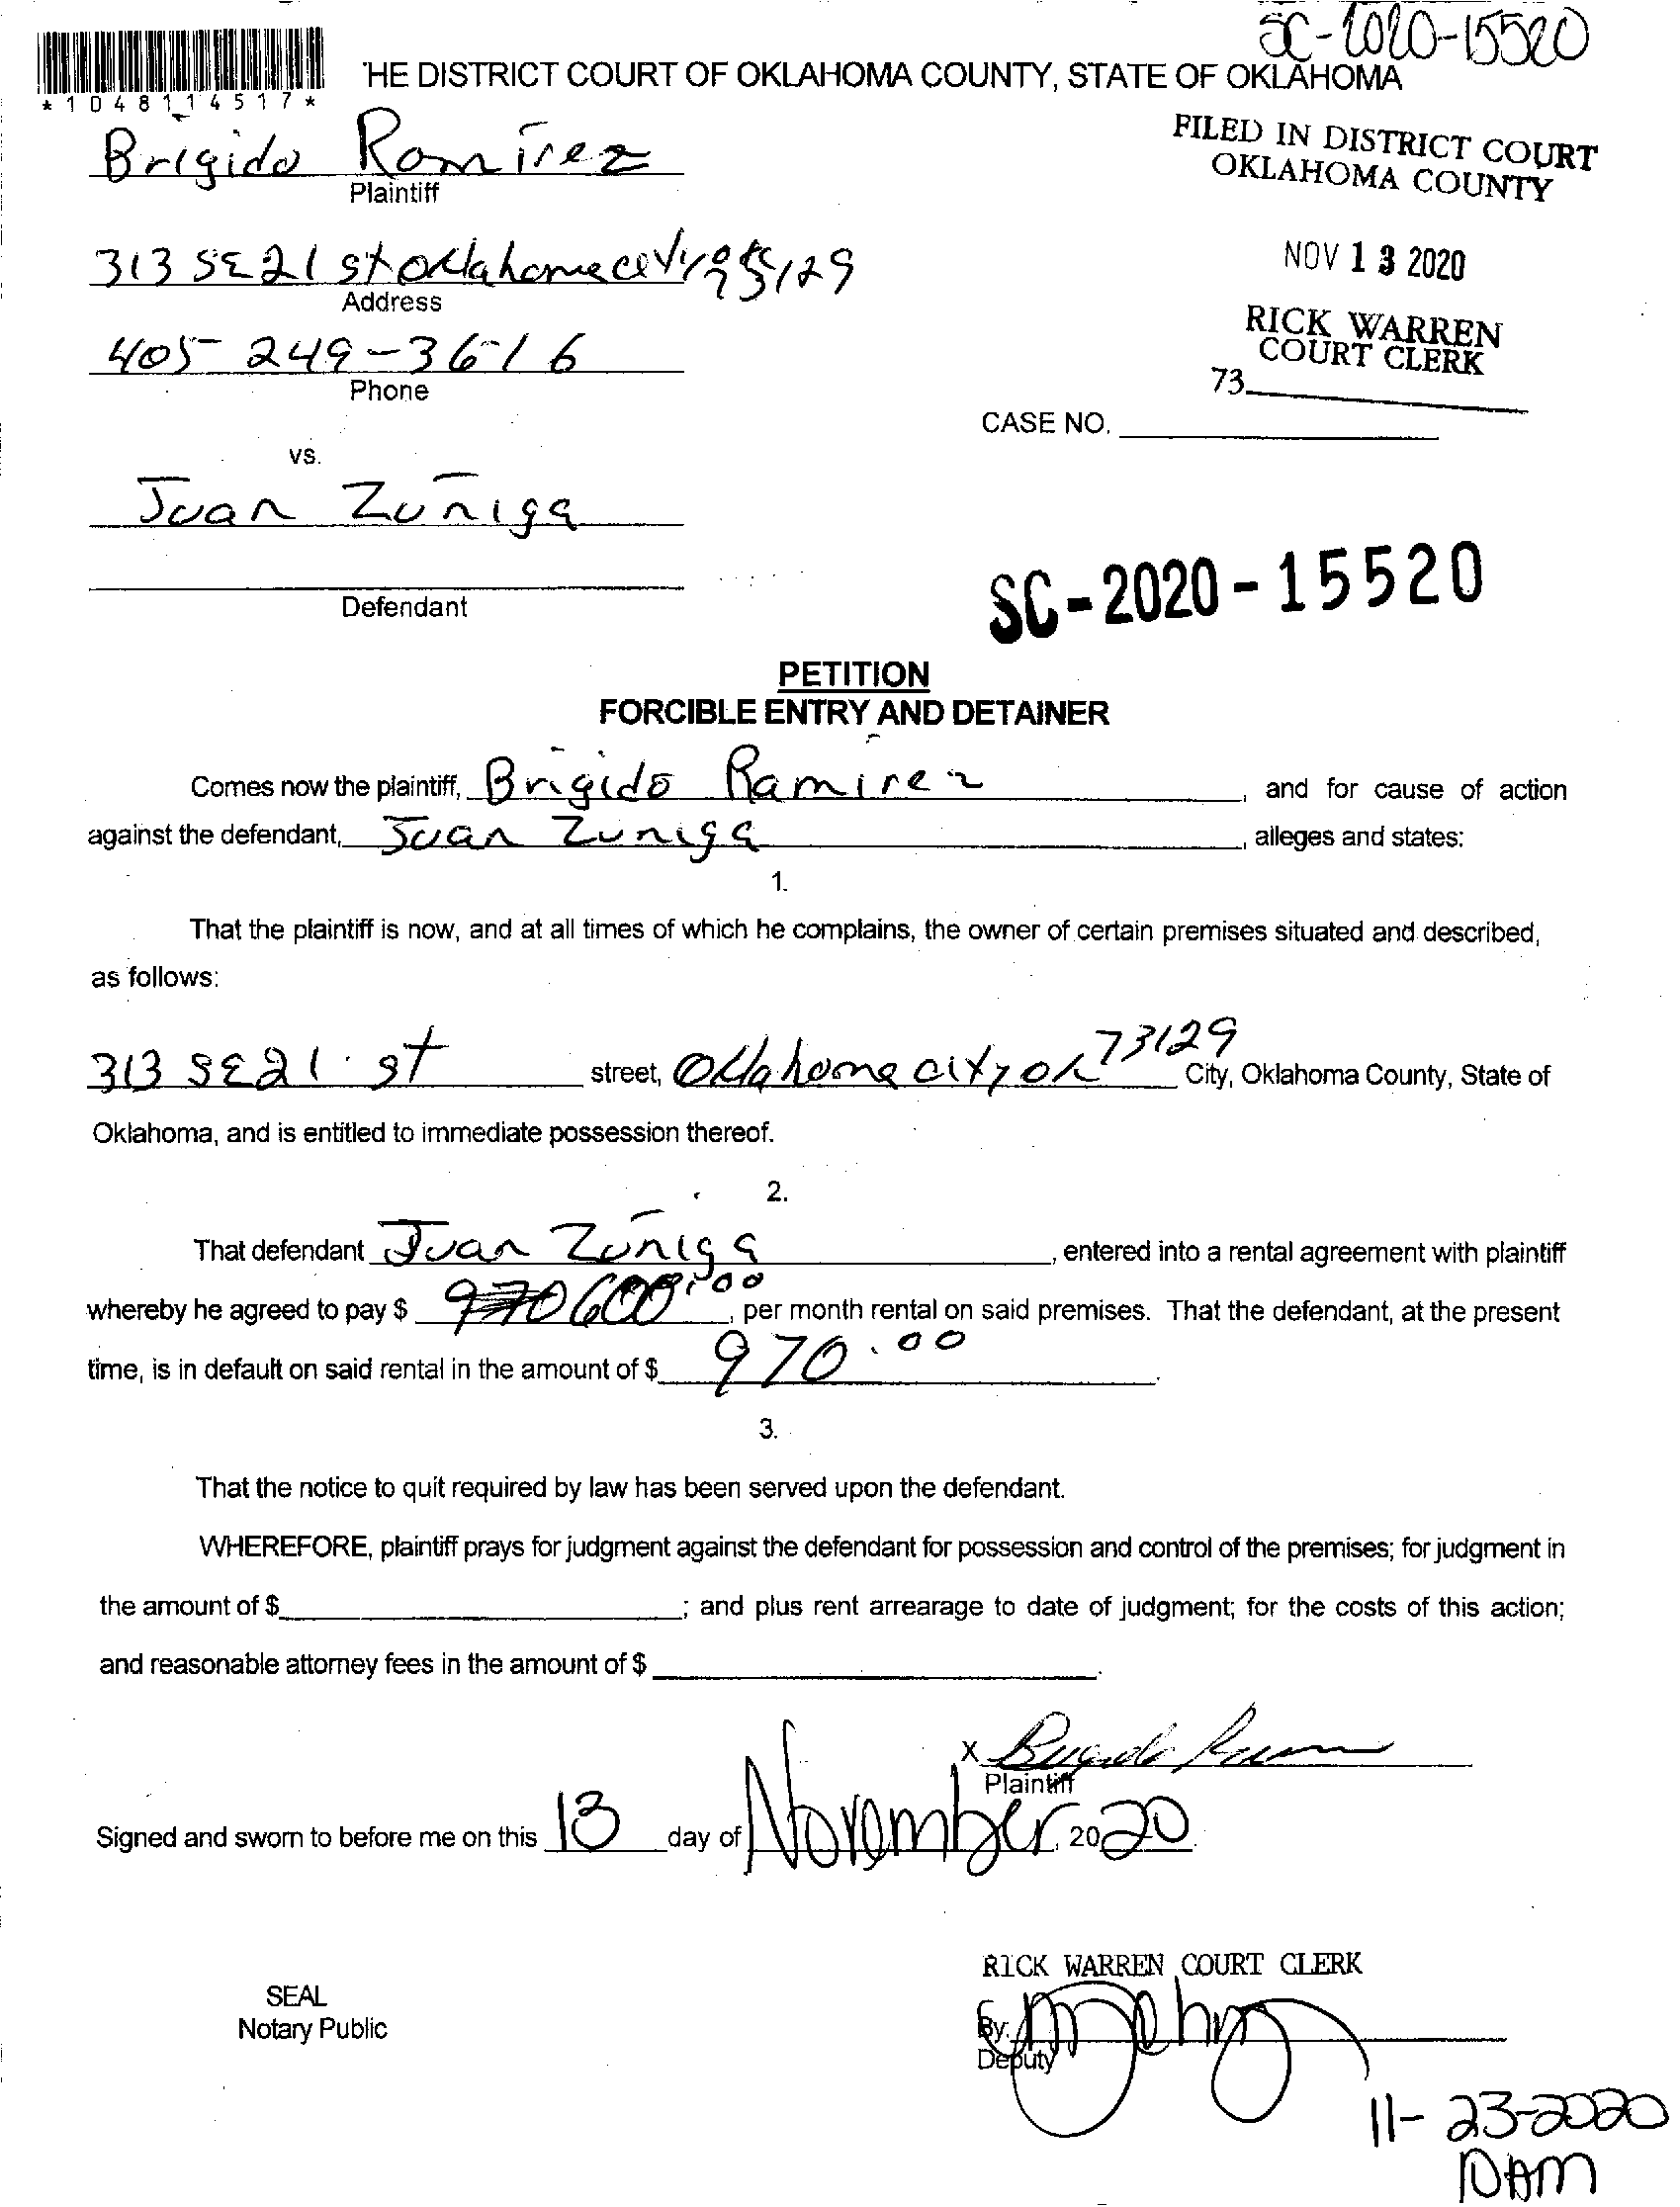 SC-2020-15520
*1048114517*
'HE DISTRICT COURT OF OKLAHOMA COUNTY, STATE OF OKLAHOMA
Brigido Ramirez
Plaintiff
FILED IN DISTRICT COURT
OKLAHOMA COUNTY
313 SE 21 st Oklahoma city 73129
Address
NOV 13 2020
405 249-3616
Phone
RICK WARREN
COURT CLERK
73
CASE NO.
vs.
Juan Zuniga
Defendant
SC-2020-15520
PETITION
FORCIBLE ENTRY AND DETAINER
Comes now the plaintiff, Brigido Ramirez, and for cause of action
against the defendant, Juan Zuniga, alleges and states:
1.
That the plaintiff is now, and at all times of which he complains, the owner of certain premises situated and described,
as follows:
313 SE 21 st street, Oklahoma city ok 73129 City, Oklahoma County, State of
Oklahoma, and is entitled to immediate possession thereof.
2.
That defendant Juan Zuniga, entered into a rental agreement with plaintiff
whereby he agreed to pay $ 970 600.00, per month rental on said premises. That the defendant, at the present
time, is in default on said rental in the amount of $ 970.00.
3.
That the notice to quit required by law has been served upon the defendant.
WHEREFORE, plaintiff prays for judgment against the defendant for possession and control of the premises; for judgment in
the amount of $ ; and plus rent arrearage to date of judgment; for the costs of this action;
and reasonable attorney fees in the amount of $ .
X
Plaintiff
Signed and sworn to before me on this 13 day of November, 2020.
RICK WARREN COURT CLERK
SEAL
Notary Public
By:
Deputy
11-23-2020
10AM